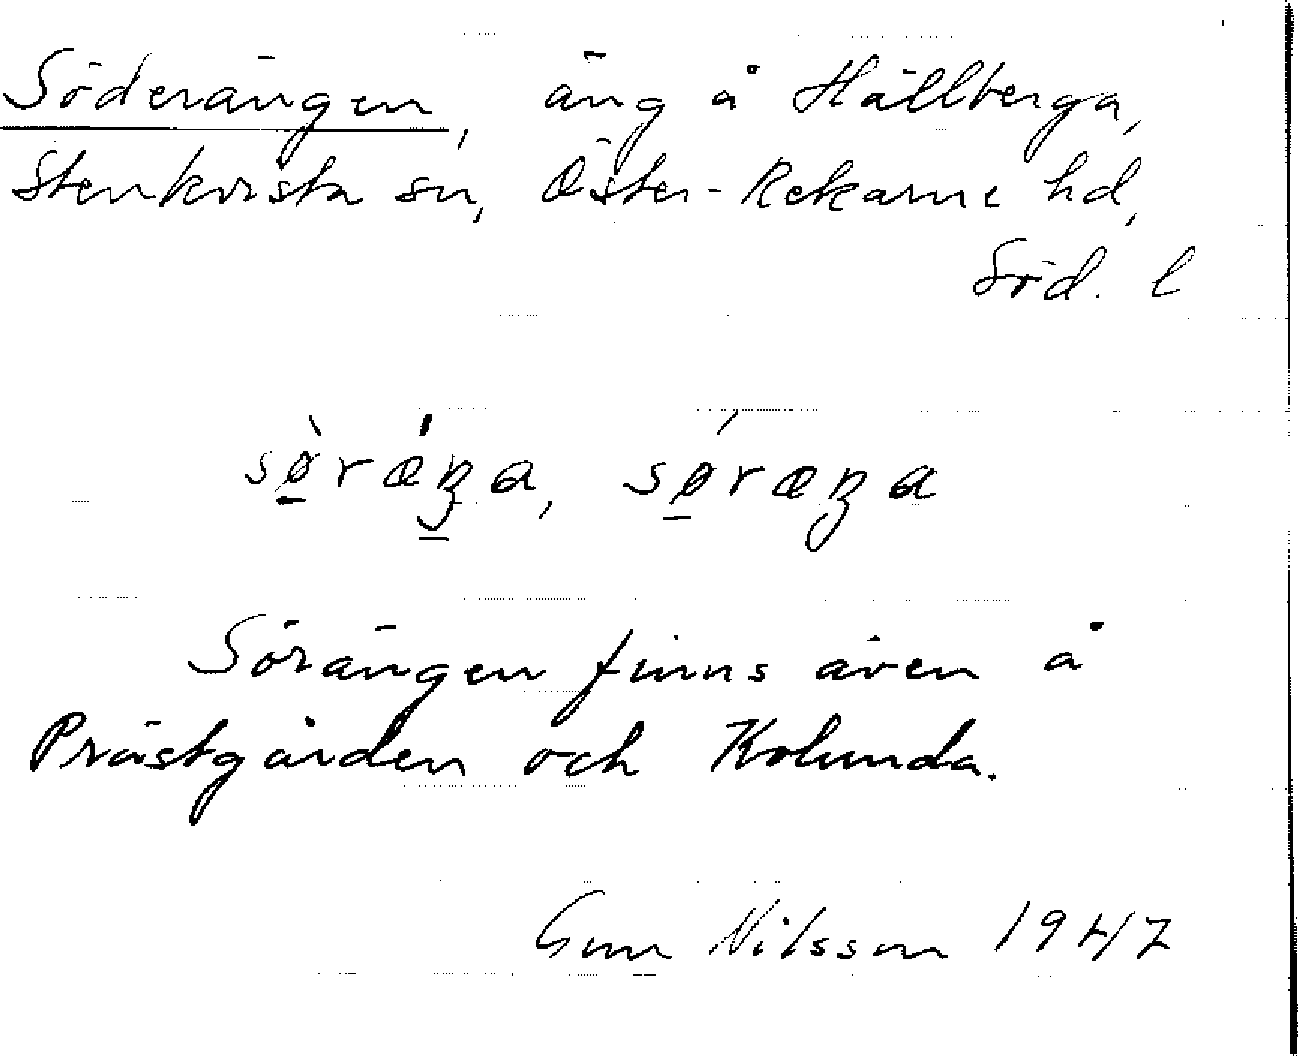 Söderängen, äng å Hällberga,
Stenkvista sn, Öster-Rekarne hd,
Söd. l
sø̀rǽŋa, sǿræŋa
Sörängen finns även å
Prästgården och Kolunda.
Gun Nilsson 1947